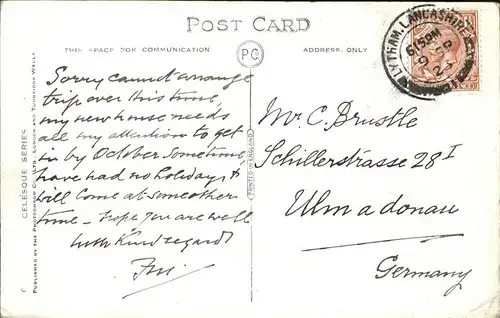 POST CARD
THIS SPACE FOR COMMUNICATION
PC
ADDRESS ONLY
LYTHAM. LANCASHIRE
6 15 PM
Sorry cannot arrange
trip over this time,
my new house needs
all my attention to get
in by October sometime
have had no holidays &
will come at some other
time – hope you are well
with kind regards
Mr. C. Brustle
Schillerstrasse 28 I
Ulm a donau
Germany
PRINTED IN ENGLAND
CELESQUE SERIES
PUBLISHED BY THE PHOTOCHROM CO. LTD., LONDON AND TUNBRIDGE WELLS